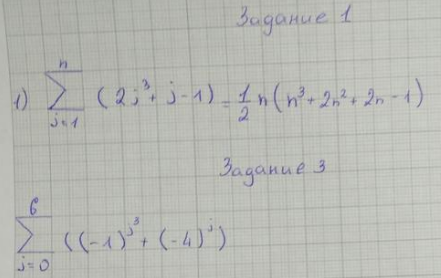 Задание 1
1) \sum_{j=1}^{n} (2j^3 + j - 1) = \frac{1}{2} n (n^3 + 2n^2 + 2n - 1)
Задание 3
\sum_{j=0}^{6} ((-1)^{j^3} + (-4)^j)